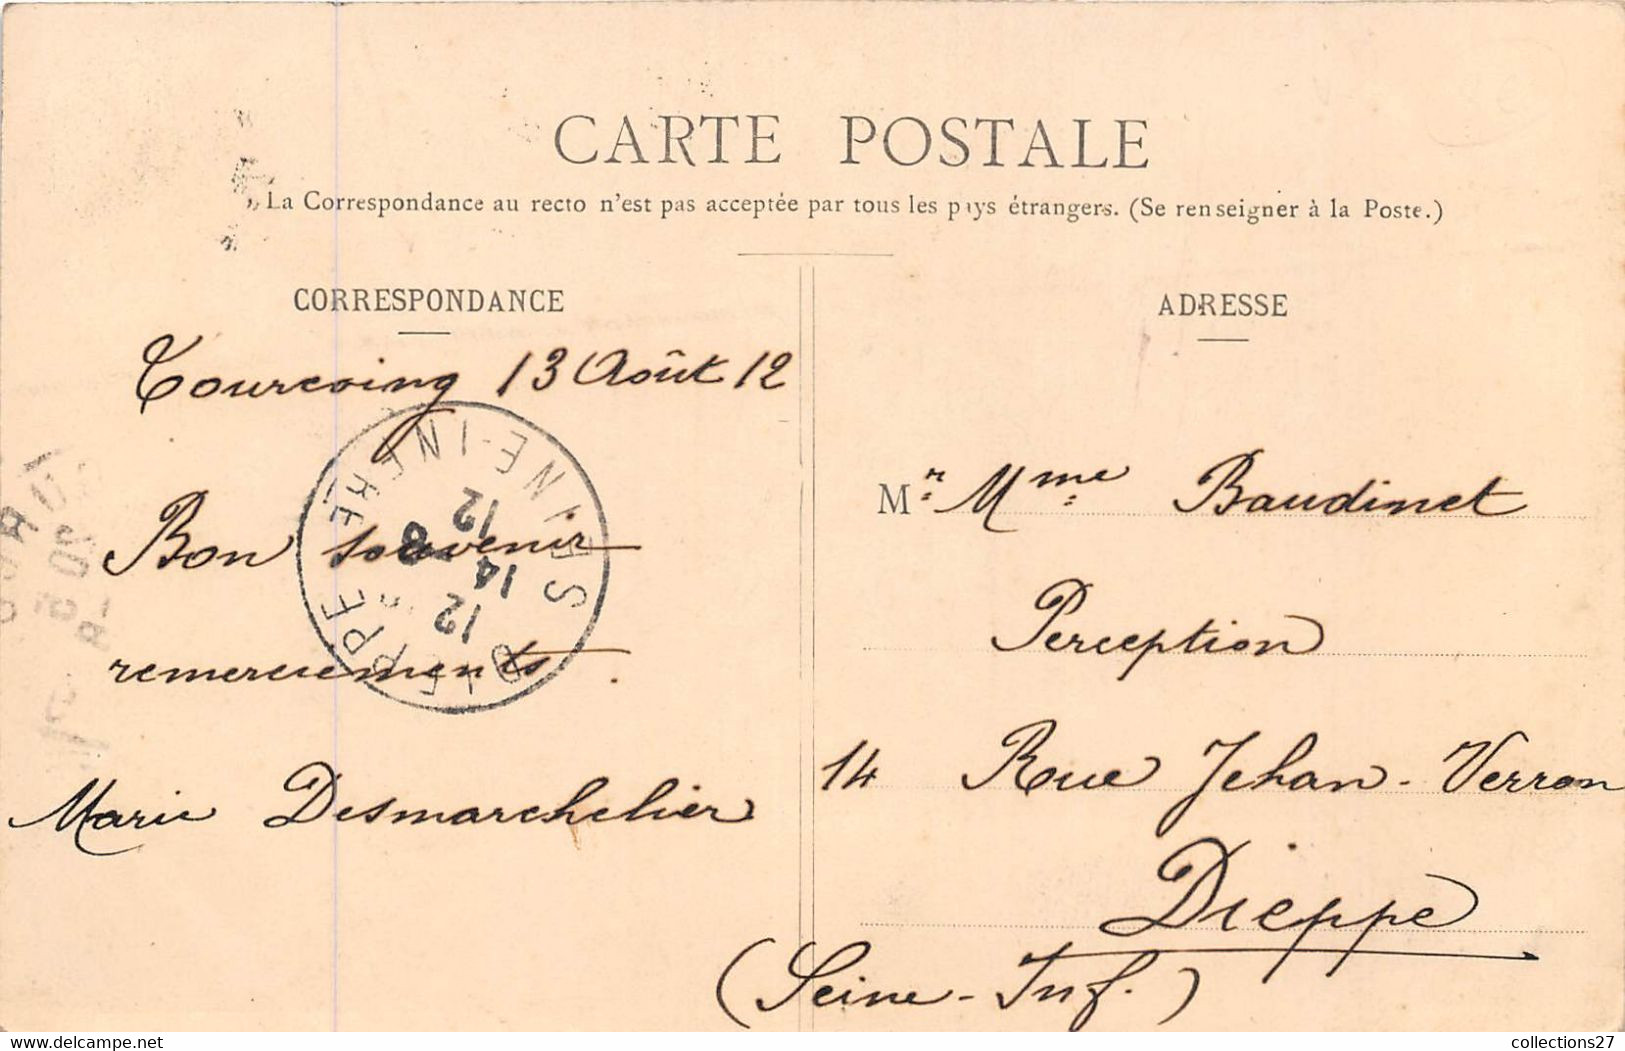 CARTE POSTALE
La Correspondance au recto n'est pas acceptée par tous les pays étrangers. (Se renseigner à la Poste.)
CORRESPONDANCE
Tourcoing 13 Août 12
Bon souvenir
remerciements.
Marie Desmarchelier
DIEPPE
SEINE-INFRE
12
14
8
12
ADRESSE
Mr. Mme Baudinet
Perception
14 Rue Jehan-Verron
Dieppe
(Seine-Inf.)
delcampe.net
collections27